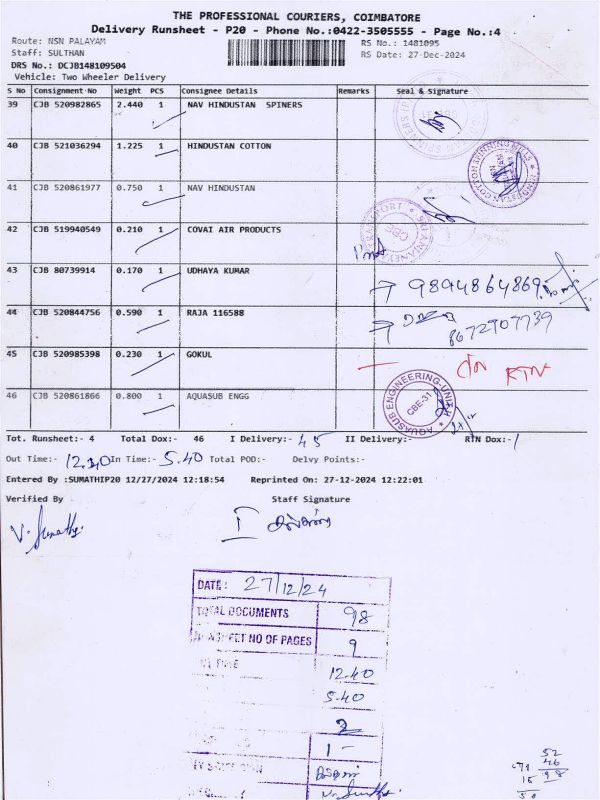 THE PROFESSIONAL COURIERS, COIMBATORE
Delivery Runsheet - P20 - Phone No.:0422-3505555 - Page No.:4
Route: NSN PALAYAM RS No.: 1481095
Staff: SULTHAN RS Date: 27-Dec-2024
DRS No.: DCJB148109504
Vehicle: Two Wheeler Delivery
S No Consignment No Weight PCS Consignee Details Remarks Seal & Signature
39 CJB 520982865 2.440 1 NAV HINDUSTAN SPINERS
40 CJB 521036294 1.225 1 HINDUSTAN COTTON
HINDUSTAN COTTON SPINNING MILLS
41 CJB 520861977 0.750 1 NAV HINDUSTAN
42 CJB 519940549 0.210 1 COVAI AIR PRODUCTS
CBE
43 CJB 80739914 0.170 1 UDHAYA KUMAR 9894864869
44 CJB 520844756 0.590 1 RAJA 116588 8672907739
45 CJB 520985398 0.230 1 GOKUL RTN
46 CJB 520861866 0.800 1 AQUASUB ENGG
AQUASUB ENGINEERING-UNIT
CBE-31
Tot. Runsheet:- 4 Total Dox:- 46 I Delivery:- 45 II Delivery:- RTN Dox:- 1
Out Time:- 12.40 In Time:- 5.40 Total POD:- Delvy Points:-
Entered By :SUMATHIP20 12/27/2024 12:18:54 Reprinted On: 27-12-2024 12:22:01
Verified By Staff Signature
V. Sumathi
DATE: 27/12/24
TOTAL DOCUMENTS 98
NO OF PAGES 9
12.40
5.40
2
1 -
V. Sumathi
52
46
98